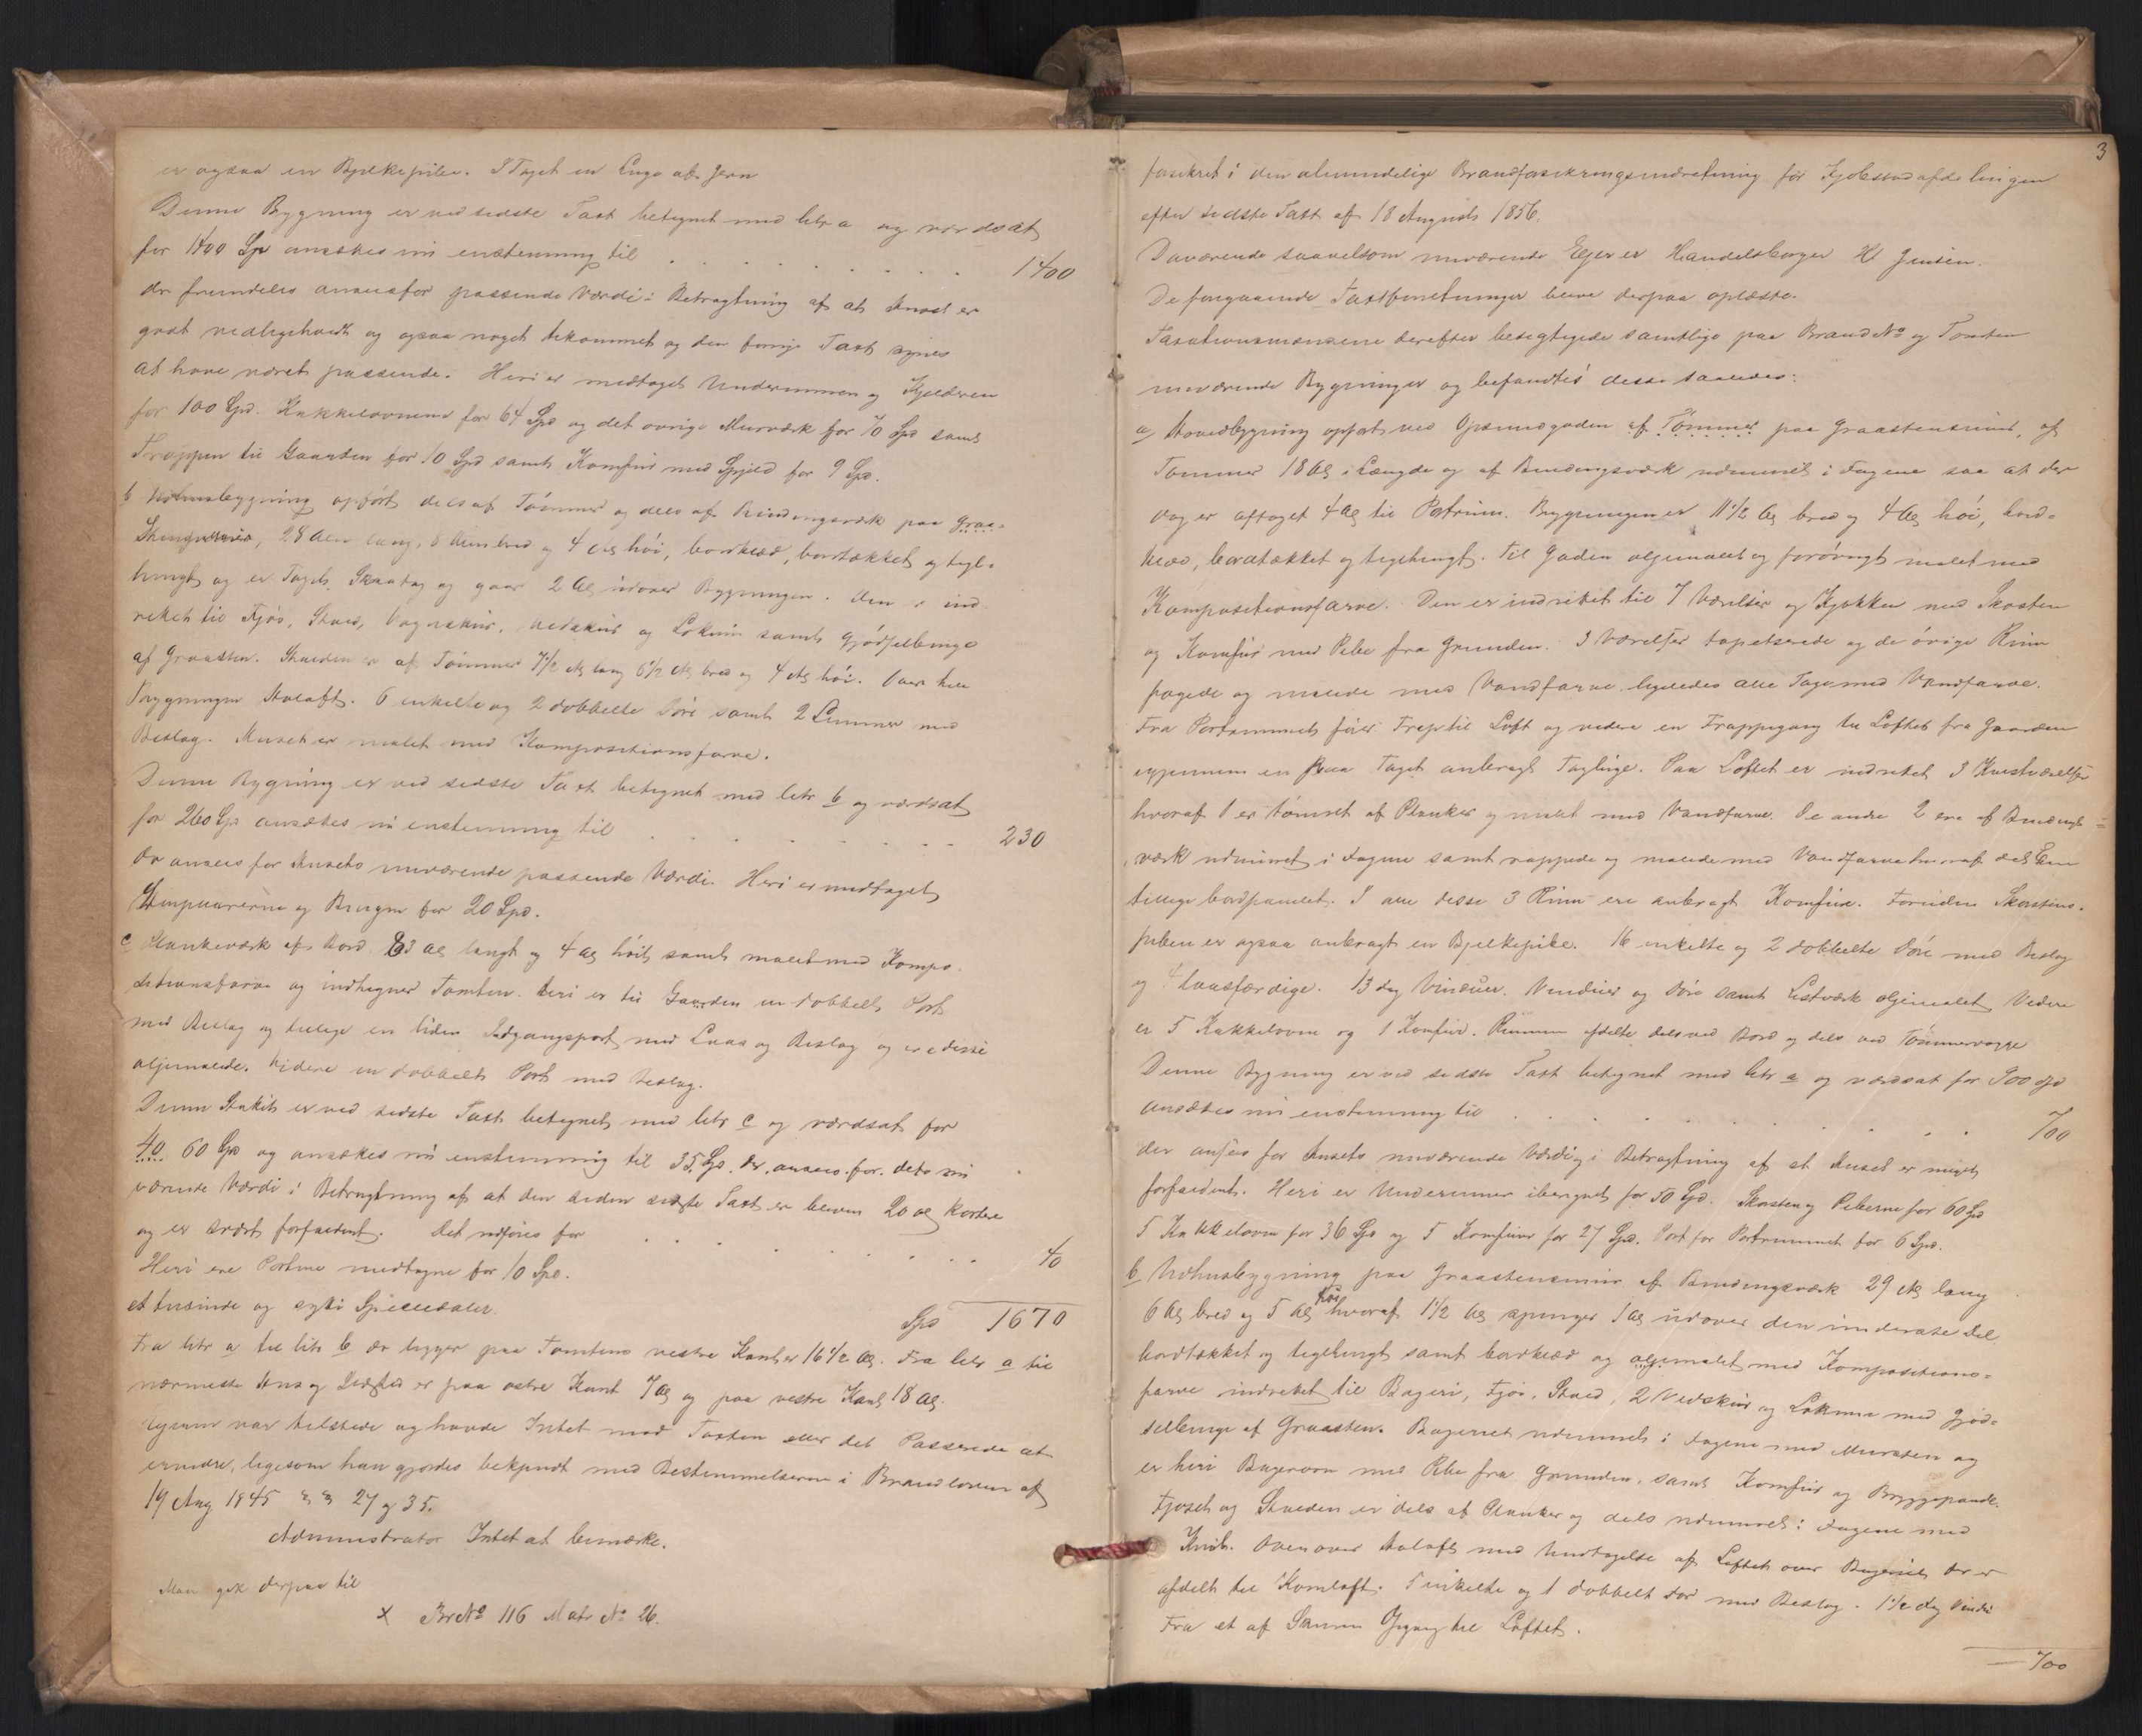 er ogsaa en Bjelkepibe. I Taget en Luge af Jern
Denne Bygning er ved sidste Taxt betegnet med litr a og værdsat
for 1400 Spd ansættes nu enstemmig til . . . . . . . . 1400
der fremdeles ansees for passende Værdi i Betragtning af at Huset er
godt vedligeholdt og ogsaa noget bekommet og den forrige Taxt synes
at have været passende. Heri er medtaget Undermuren og Kjelderen
for 100 Spd. Kakkelovnene for 64 Spd og det øvrige Murværk for 70 Spd samt
Trappen til Gaarden for 10 Spd samt Komfur med Spjeld for 9 Spd.
b Udhusbygning opført dels af Tømmer og dels af Bindingsværk paa Graa-
stensmuur, 28 Alen lang, 6 Alen bred og 4 Al høi, bordklæd, bordtækket og tegl-
hængt og er Taget Skraatag og gaar 2 Al udover Bygningen. Den er ind
rettet til Fjøs, Stald, Vognskur, Vedskur og Lokum samt Gjødselbinge
af Graasten. Stalden er af Tømmer 7½ Al lang 6½ Al bred og 4 Al høi. Over hele
Bygningen Høloft. 6 enkelte og 2 dobbelte Døre samt 2 Lemmer med
Beslag. Huset er malet med Kompositionsfarve.
Denne Bygning er ved sidste Taxt betegnet med litr b og værdsat
for 260 Spd ansættes nu enstemmig til . . . . . . . . 230
der ansees for Husets nuværende passende Værdi. Heri er medtaget
Grunmurerne og Bingen for 20 Spd.
c Plankeværk af Bord 83 Al langt og 4 Al høit samt malet med Kompo-
sitionsfarve og indhegner Tomten. Heri er til Gaarden en dobbelt Port
med Beslag og tillige en liden Indgangsport med Laas og Beslag og ere disse
oljemalede. Videre en dobbelt Port med Beslag.
Denne Stakit er ved sidste Taxt betegnet med litr c og værdsat for
40 60 Spd og ansættes nu enstemmig til 35 Spd. der ansees for dets nu
værende Værdi i Betragtning af at den siden sidste Taxt er bleven 20 Al kortere
og er svært forfaldent. Det udføres for . . . . . . . . 40
Heri ere Portene medtagne for 10 Spd.
et tusinde og sytti Speciedaler. Spd 1670
Fra litr a til litr b der ligger paa Tomtens vestre Kant er 16½ Al. Fra litr a til
nærmeste Hus og Ildsted er paa østre Kant 7 Al og paa vestre Kant 18 Al.
Ejeren var tilstede og havde Intet mod Taxten eller det Passerede at
erindre, ligesom han gjordes bekjendt med Bestemmelserne i Brandloven af
19 Aug 1845 §§ 27 og 35.
Administrator Intet at bemærke.
Man gik derpaa til
x Br No 116 Matr No 26.
3
forsikret i den almindelige Brandforsikringsindretning for Kjøbstadafdelingen
efter sidste Taxt af 18 August 1856.
Daværende saavelsom nuværende Ejer er Handelsborger H Jensen.
De foregaaende Taxtforretninger bleve derpaa oplæste.
Taxationsmændene derefter besigtigede samtlige paa Brand No og Tomten
nuværende Bygninger og befandtes disse saaledes:
a Hovedbygning opført ved Gjennegaden af Tømmer paa Graastensmuur, af
Tømmer 18 Al i Længde og af Bindingsværk udmuret i Fagene saa at der
dog er aftaget 4 Al til Portrum. Bygningen er 11½ Al bred og 4 Al høi, bord-
klæd, bordtækket og teglhængt. Til Gaden oljemalet og forøvrigt malet med
Kompositionsfarve. Den er indrettet til 7 Værelser og Kjøkken med Skorsten
og Komfur med Pibe fra Grunden. 3 Værelser tapetserede og de øvrige Rum
pagede og malede med Vandfarve ligeledes alle Tage med Vandfarve.
Fra Portrummet fører Trap til Loft og videre en Trappegang til Loftet fra Gaarden
igjennem en paa Taget anbragt Tagluge. Paa Loftet er indrettet 3 Kvistværelser
hvoraf 1 er tømret af Planker og malet med Vandfarve. De andre 2 ere af Bindings-
værk udmuret i Fagene samt rappede og malede med Vandfarve hvoraf det Ene
tillige bordpanelet. I alle disse 3 Rum ere anbragt Komfur. Foruden Skorstens-
piben er ogsaa anbragt en Bjelkepibe. 16 enkelte og 2 dobbelte Døre med Beslag
og 4 laasfærdige. 13 Fag Vinduer. Vinduer og Døre samt Listværk oljemalet Videre
er 5 Kakkelovne og 1 Komfur. Rummene afdelte dels ved Bord og dels ved Tømmervægge
Denne Bygning er ved sidste Taxt betegnet med litr a og værdsat for 900 Spd
ansættes nu enstemmig til . . . . . . . . 700
der ansees for Husets nuværende Værdi, i Betragtning af at Huset er meget
forfaldent. Heri er Undermuren iberegnet for 50 Spd. Skorsten og Piberne for 60 Spd
5 Kakkelovne for 36 Spd og 5 Komfurer for 27 Spd. Port for Portrummet for 6 Spd.
b Udhusbygning paa Graastensmuur af Bindingsværk 29 Al lang
6 Al bred og 5 Al høi hvoraf 1½ Al springer 1 Al udover den underste Del
bordtækket og teglhengt samt bordklæd og oljemalet med Kompositions-
farve indrettet til Bageri, Fjøs, Stald, 2 Vedskur og Lokum med Gjød-
selbinge af Graasten. Bageriet udmuret i Fagene med Mursten og
er heri Bagerovn med Pibe fra Grunden, samt Komfur og Bryggepande.
Fjøset og Stalden er dels af Planker og dels udmuret i Fagene med
Kvist. Ovenover Høloft med Undtagelse af Loftet over Bageriet der er
afdelt til Kornloft. 5 enkelte og 1 dobbelt Dør med Beslag. 1½ Fag Vindu
Fra et af Samme Opgang til Loftet.
— 700